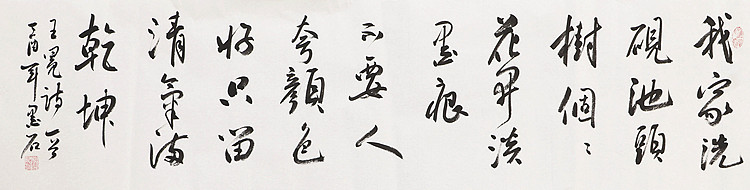 我家洗
硯池頭
樹個々
花開淡
墨痕
不要人
夸顏色
好只留
清氣滿
乾坤
王冕詩一首
丁酉年墨石